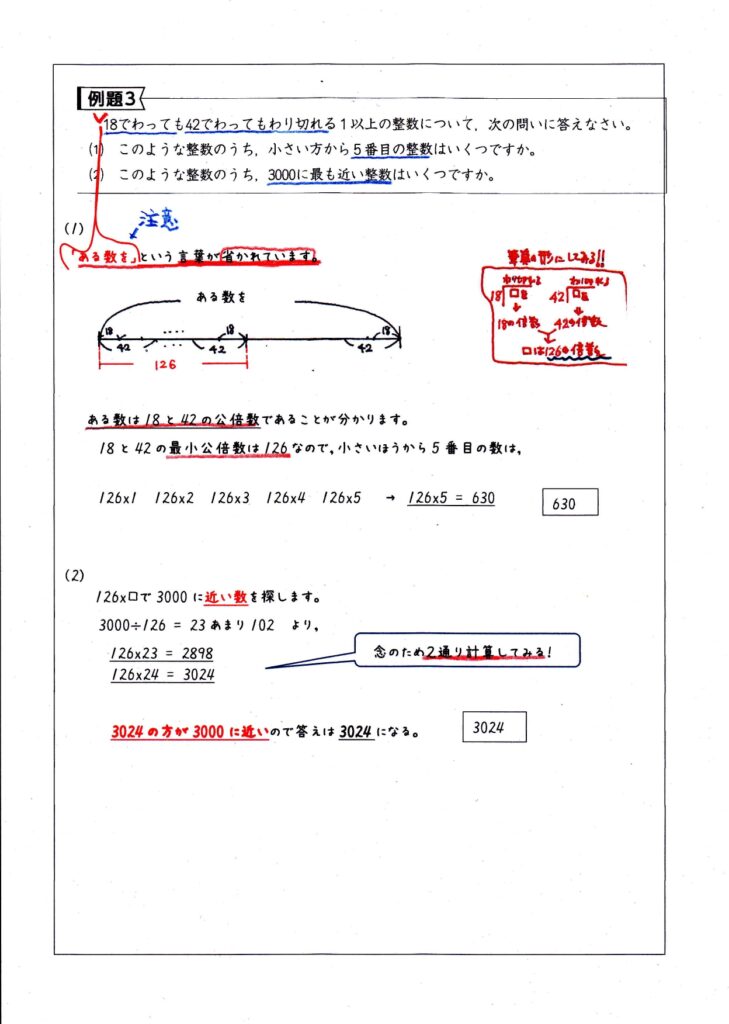 例題3
18でわっても42でわってもわり切れる1以上の整数について，次の問いに答えなさい。
(1) このような整数のうち，小さい方から5番目の整数はいくつですか。
(2) このような整数のうち，3000に最も近い整数はいくつですか。
(1)
注意
「ある数を」という言葉が省かれています。
筆算の形にしてみる!!
ある数を
18 42 ‥‥ 42 18 42 18
126
18 □ 42 □
18の倍数 42の倍数
□は126の倍数
ある数は18と42の公倍数であることが分かります。
18と42の最小公倍数は126なので，小さいほうから5番目の数は，
126x1 126x2 126x3 126x4 126x5 → 126x5 = 630
630
(2)
126x□で3000に近い数を探します。
3000÷126 = 23あまり102 より，
126x23 = 2898
126x24 = 3024
念のため2通り計算してみる!
3024の方が3000に近いので答えは3024になる。
3024